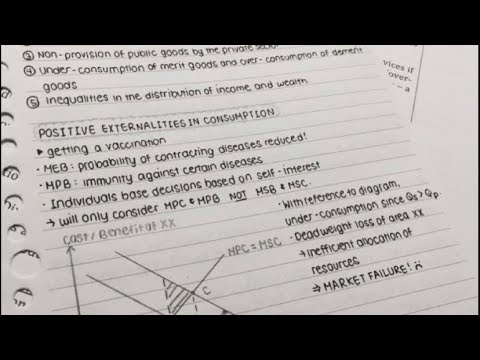 ③ Non-provision of public goods by the private sector
④ Under-consumption of merit goods and over-consumption of demerit
goods
⑤ Inequalities in the distribution of income and wealth
POSITIVE EXTERNALITIES IN CONSUMPTION
▸ getting a vaccination
• MEB: probability of contracting diseases reduced!
• MPB: immunity against certain diseases
• Individuals base decisions based on self-interest
→ will only consider MPC & MPB NOT MSB & MSC.
Cost/Benefit of XX
MPC = MSC
C
• With reference to diagram,
under-consumption since Qs > Qp.
• Deadweight loss of area XX
→ inefficient allocation of
resources
⇒ MARKET FAILURE! :(
vices if
over-
– a